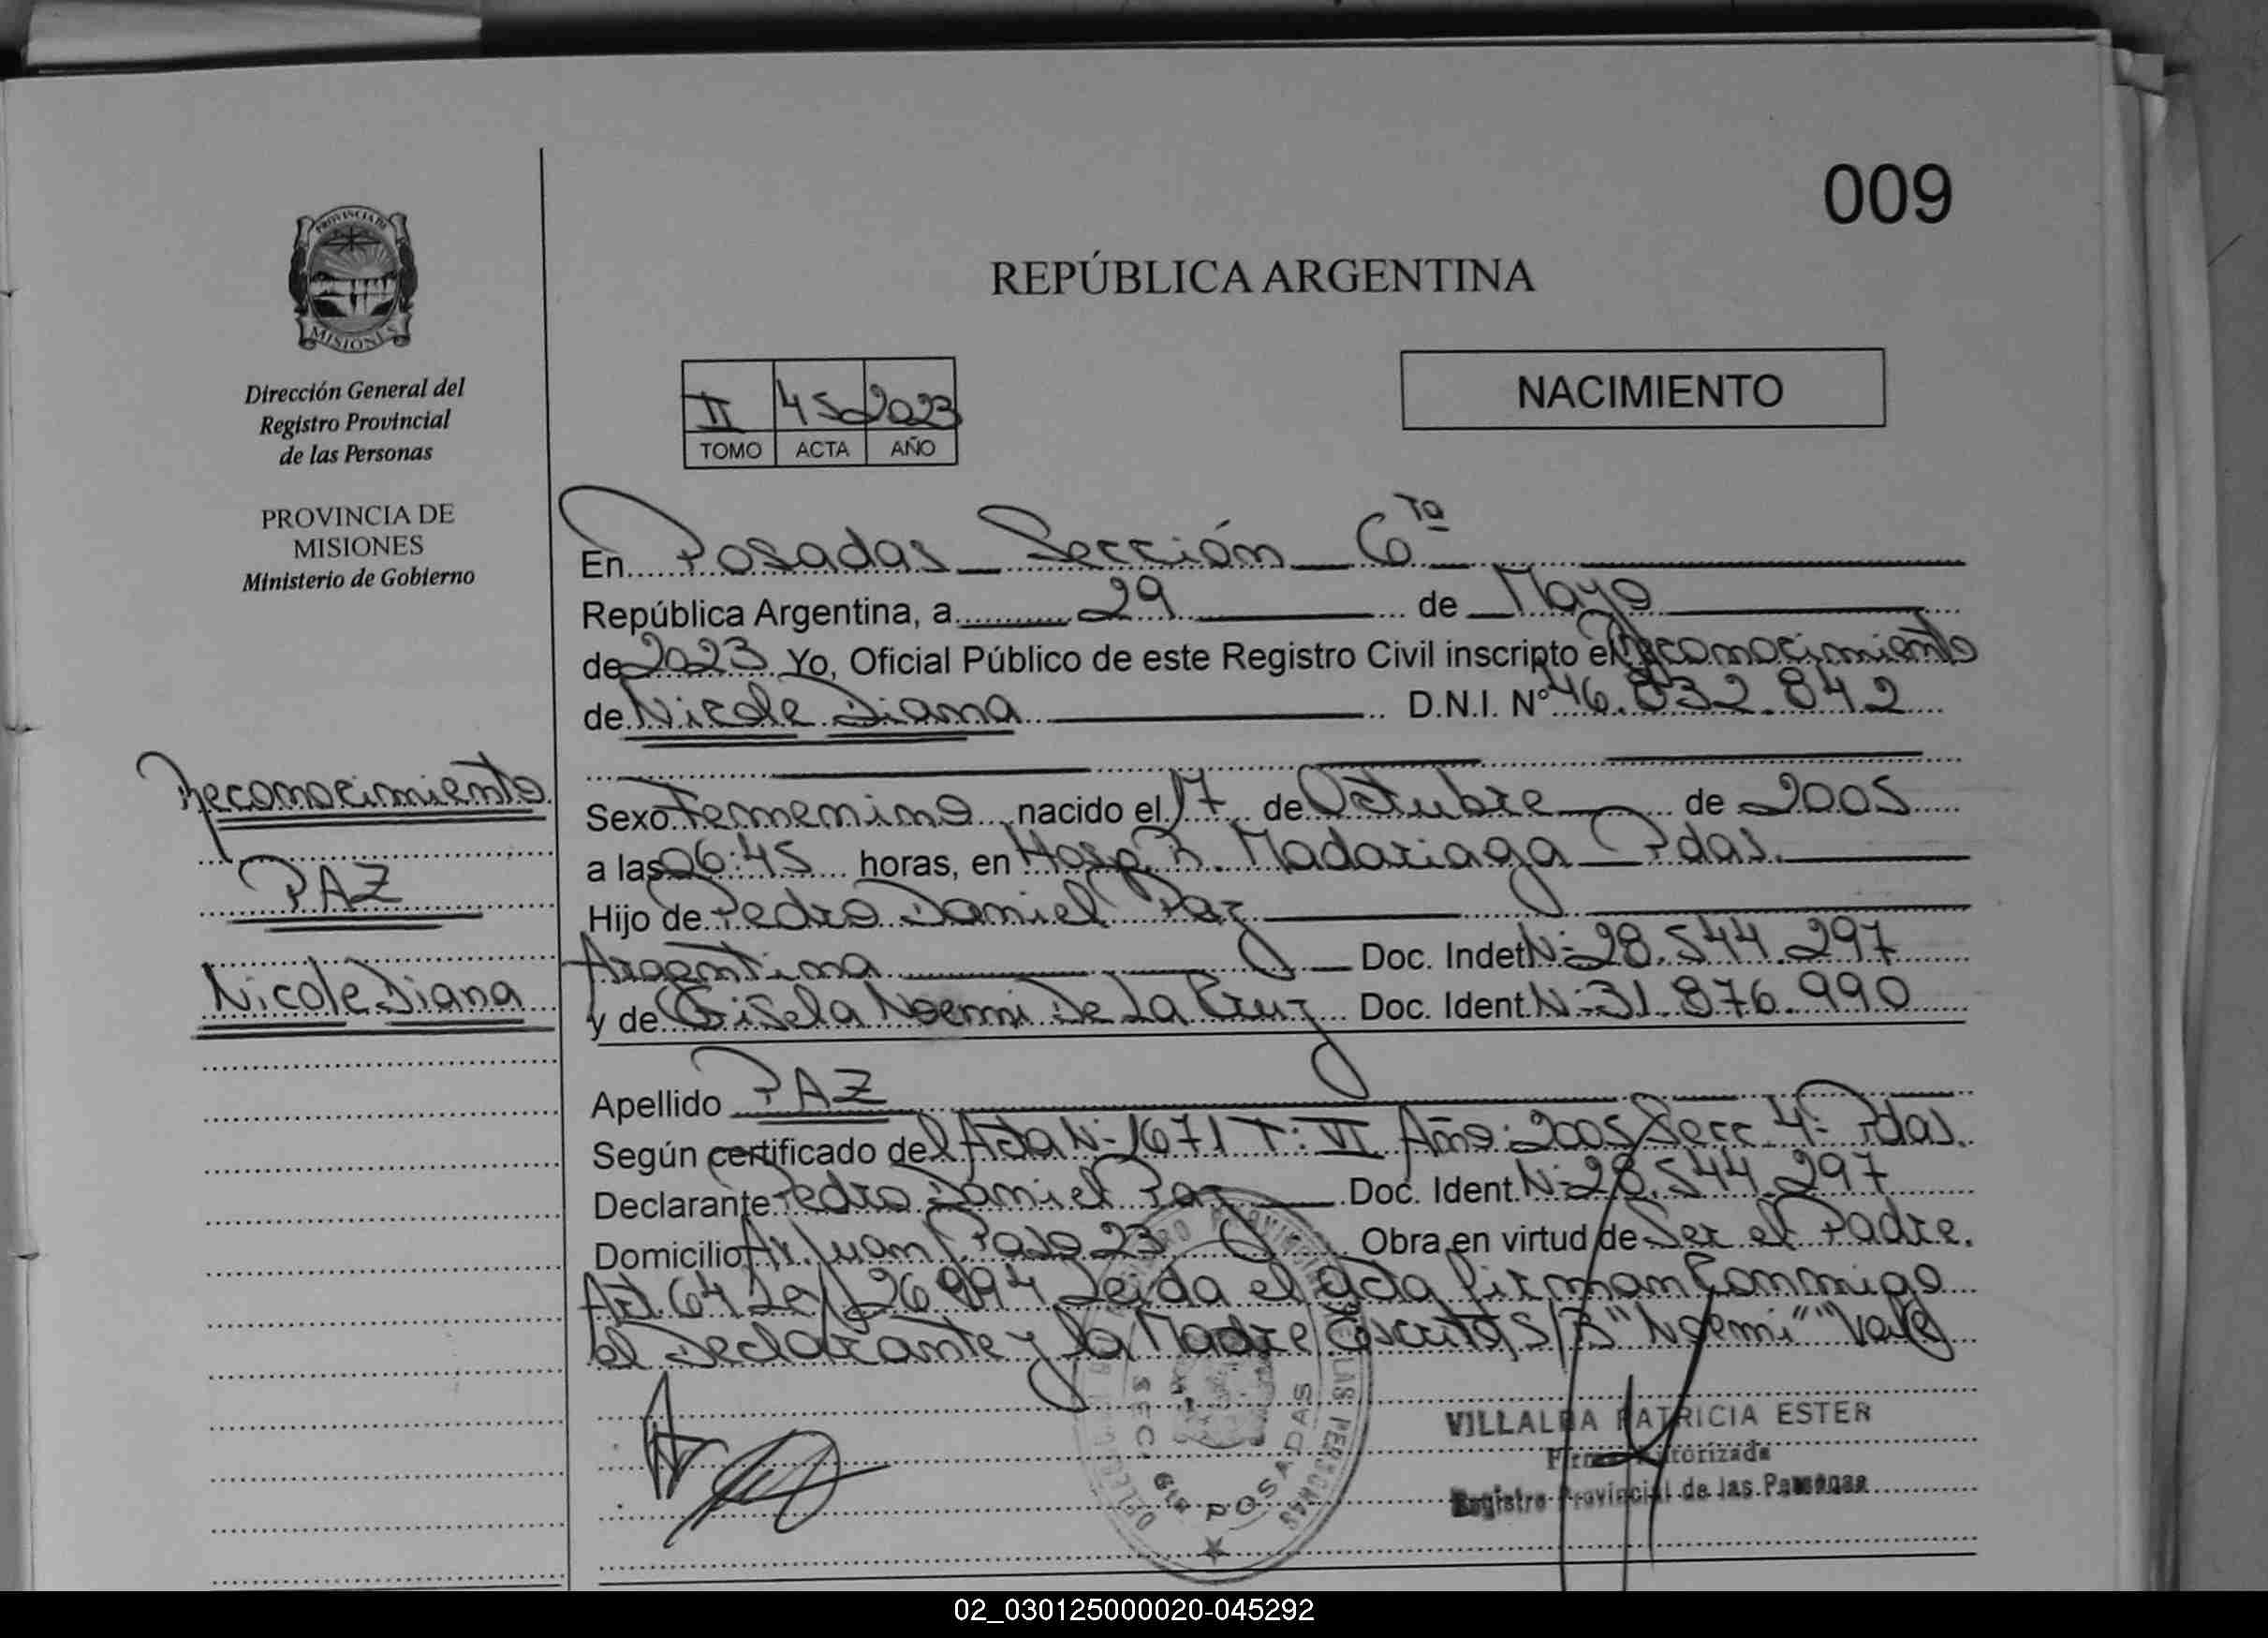 009
PROVINCIA DE
MISIONES
Dirección General del
Registro Provincial
de las Personas
PROVINCIA DE
MISIONES
Ministerio de Gobierno
Reconocimiento
PAZ
Nicole Diana
REPÚBLICA ARGENTINA
NACIMIENTO
II 45 2023
TOMO ACTA AÑO
En Posadas Sección 6ta
República Argentina, a 29 de Mayo
de 2023 Yo, Oficial Público de este Registro Civil inscripto el Reconocimiento
de Nicole Diana D.N.I. Nº 46.832.842
Sexo Femenino nacido el 17 de Octubre de 2005
a las 06:45 horas, en Hosp. R. Madariaga Pdas.
Hijo de Pedro Daniel Paz
Argentina Doc. Indet N: 28.544.297
y de Gisela Noemi De La Cruz Doc. Ident. N: 31.876.990
Apellido PAZ
Según certificado del Acta N- 1671 T: VI Año: 2005 Secc 4- Pdas.
Declarante Pedro Daniel Paz Doc. Ident. N: 28.544.297
Domicilio Av. Juan J. Paso 23 Obra en virtud de Ser el Padre.
Art. 64 Ley 26994 Leida el acta firman Conmigo
el Declarante y la Madre Escrito S/R "Noemi" "Vale"
DELEGACION REGISTRO PROVINCIAL DE LAS PERSONAS
SECC 6ta POSADAS
VILLALBA PATRICIA ESTER
Firma Autorizada
Registro Provincial de las Personas
02_030125000020-045292